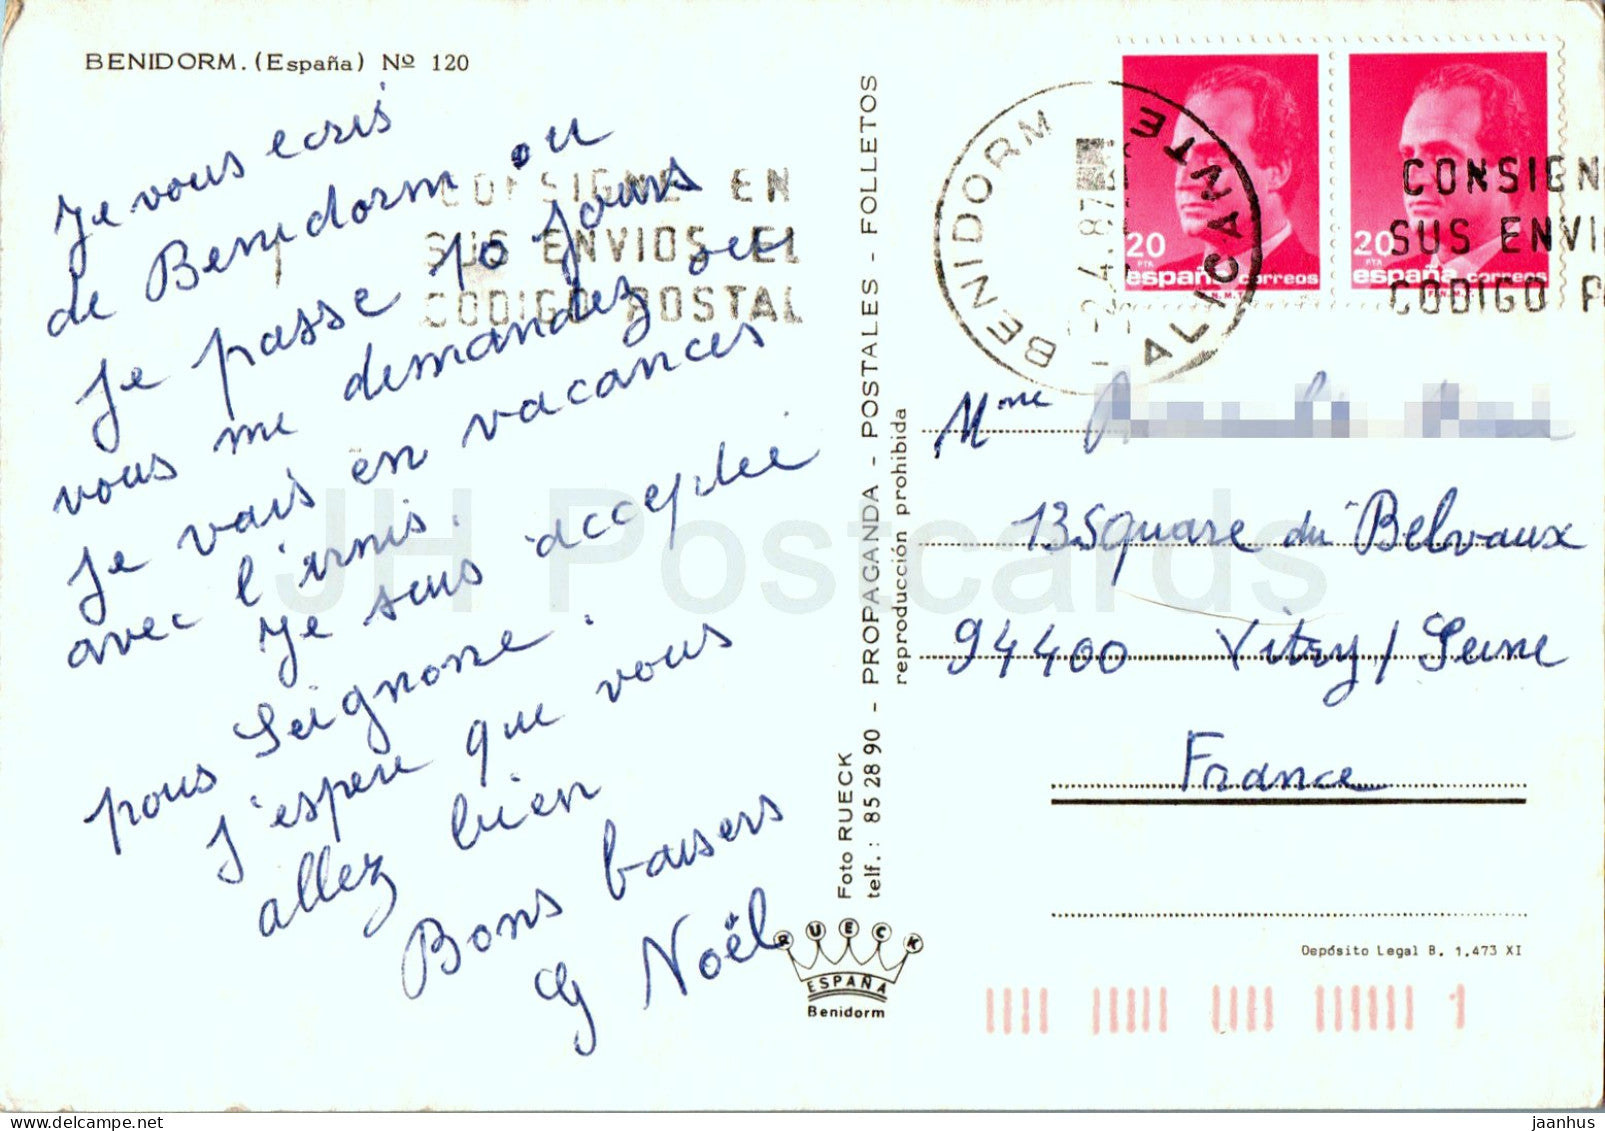 BENIDORM. (España) Nº 120
Je vous ecris
de Benidorm ou
Je passe 10 Jours
vous me demandez si
Je vais en vacances
avec l'
Je suis acceptée
pour Seignone.
J'espere que vous
allez bien
Bons baisers
Noël
CONSIGNE EN
SUS ENVIOS EL
CODIGO POSTAL
Foto RUECK
telf.: 85 28 90 - PROPAGANDA - POSTALES - FOLLETOS
reproducción prohibida
RUECK
ESPAÑA
Benidorm
BENIDORM
ALICANTE
2 4. 87
20
PTA
españa correos
20
PTA
españa correos
CONSIGN
SUS ENVI
CODIGO P
Mme
13 Square du Belvaux
94400 Vitry / Seine
France
Depósito Legal B. 1.473 XI
1
JH Postcards
delcampe.net
jaanhus